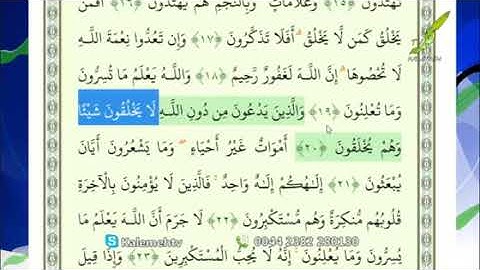 تَهْتَدُونَ ﴿١٥﴾ وَعَلَامَاتٍ ۚ وَبِالنَّجْمِ هُمْ يَهْتَدُونَ ﴿١٦﴾ أَفَمَنْ
يَخْلُقُ كَمَنْ لَا يَخْلُقُ ۗ أَفَلَا تَذَكَّرُونَ ﴿١٧﴾ وَإِنْ تَعُدُّوا نِعْمَةَ اللَّهِ
لَا تُحْصُوهَا ۗ إِنَّ اللَّهَ لَغَفُورٌ رَحِيمٌ ﴿١٨﴾ وَاللَّهُ يَعْلَمُ مَا تُسِرُّونَ
وَمَا تُعْلِنُونَ ﴿١٩﴾ وَالَّذِينَ يَدْعُونَ مِنْ دُونِ اللَّهِ لَا يَخْلُقُونَ شَيْئًا
وَهُمْ يُخْلَقُونَ ﴿٢٠﴾ أَمْوَاتٌ غَيْرُ أَحْيَاءٍ ۖ وَمَا يَشْعُرُونَ أَيَّانَ
يُبْعَثُونَ ﴿٢١﴾ إِلَٰهُكُمْ إِلَٰهٌ وَاحِدٌ ۚ فَالَّذِينَ لَا يُؤْمِنُونَ بِالْآخِرَةِ
قُلُوبُهُمْ مُنْكِرَةٌ وَهُمْ مُسْتَكْبِرُونَ ﴿٢٢﴾ لَا جَرَمَ أَنَّ اللَّهَ يَعْلَمُ مَا
يُسِرُّونَ وَمَا يُعْلِنُونَ ۚ إِنَّهُ لَا يُحِبُّ الْمُسْتَكْبِرِينَ ﴿٢٣﴾ وَإِذَا قِيلَ
Kalemehtv 0044 2382 280130